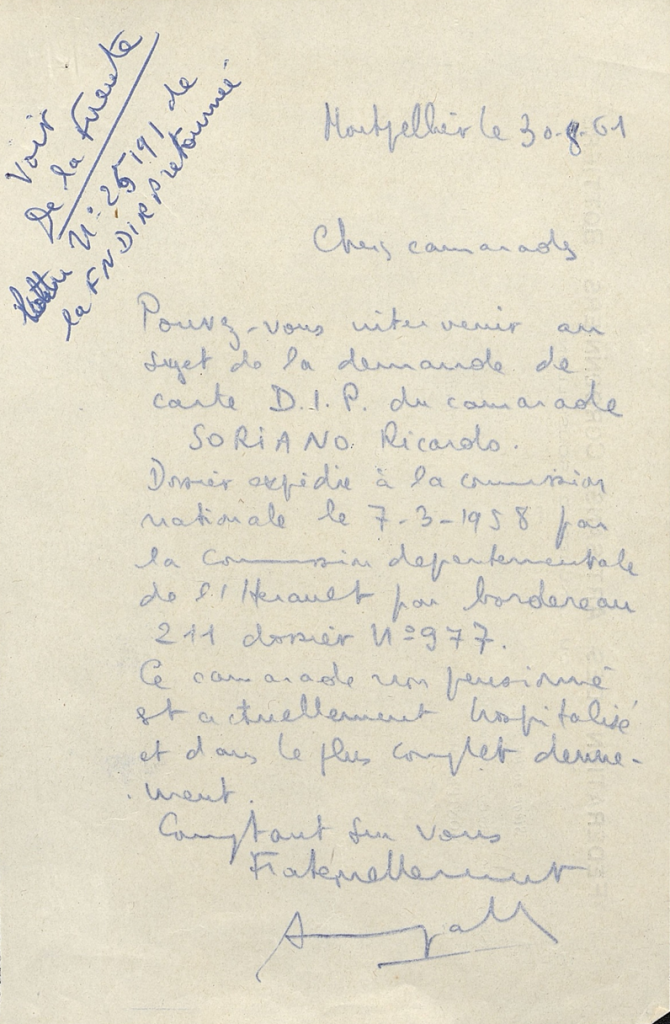 Voir
De la Fuente
lettre N° 25191 de
la FNDIRP retournée
Montpellier le 30-8-61
Chers camarades
Pouvez-vous intervenir au
sujet de la demande de
carte D.I.P. du camarade
SORIANO Ricardo.
Dossier expédié à la commission
nationale le 7-3-1958 par
la Commission departementale
de l'Herault par bordereau
211 dossier N° 977.
Ce camarade non pensionné
est actuellement hospitalisé
et dans le plus complet dénue-
ment.
Comptant sur vous
Fraternellement